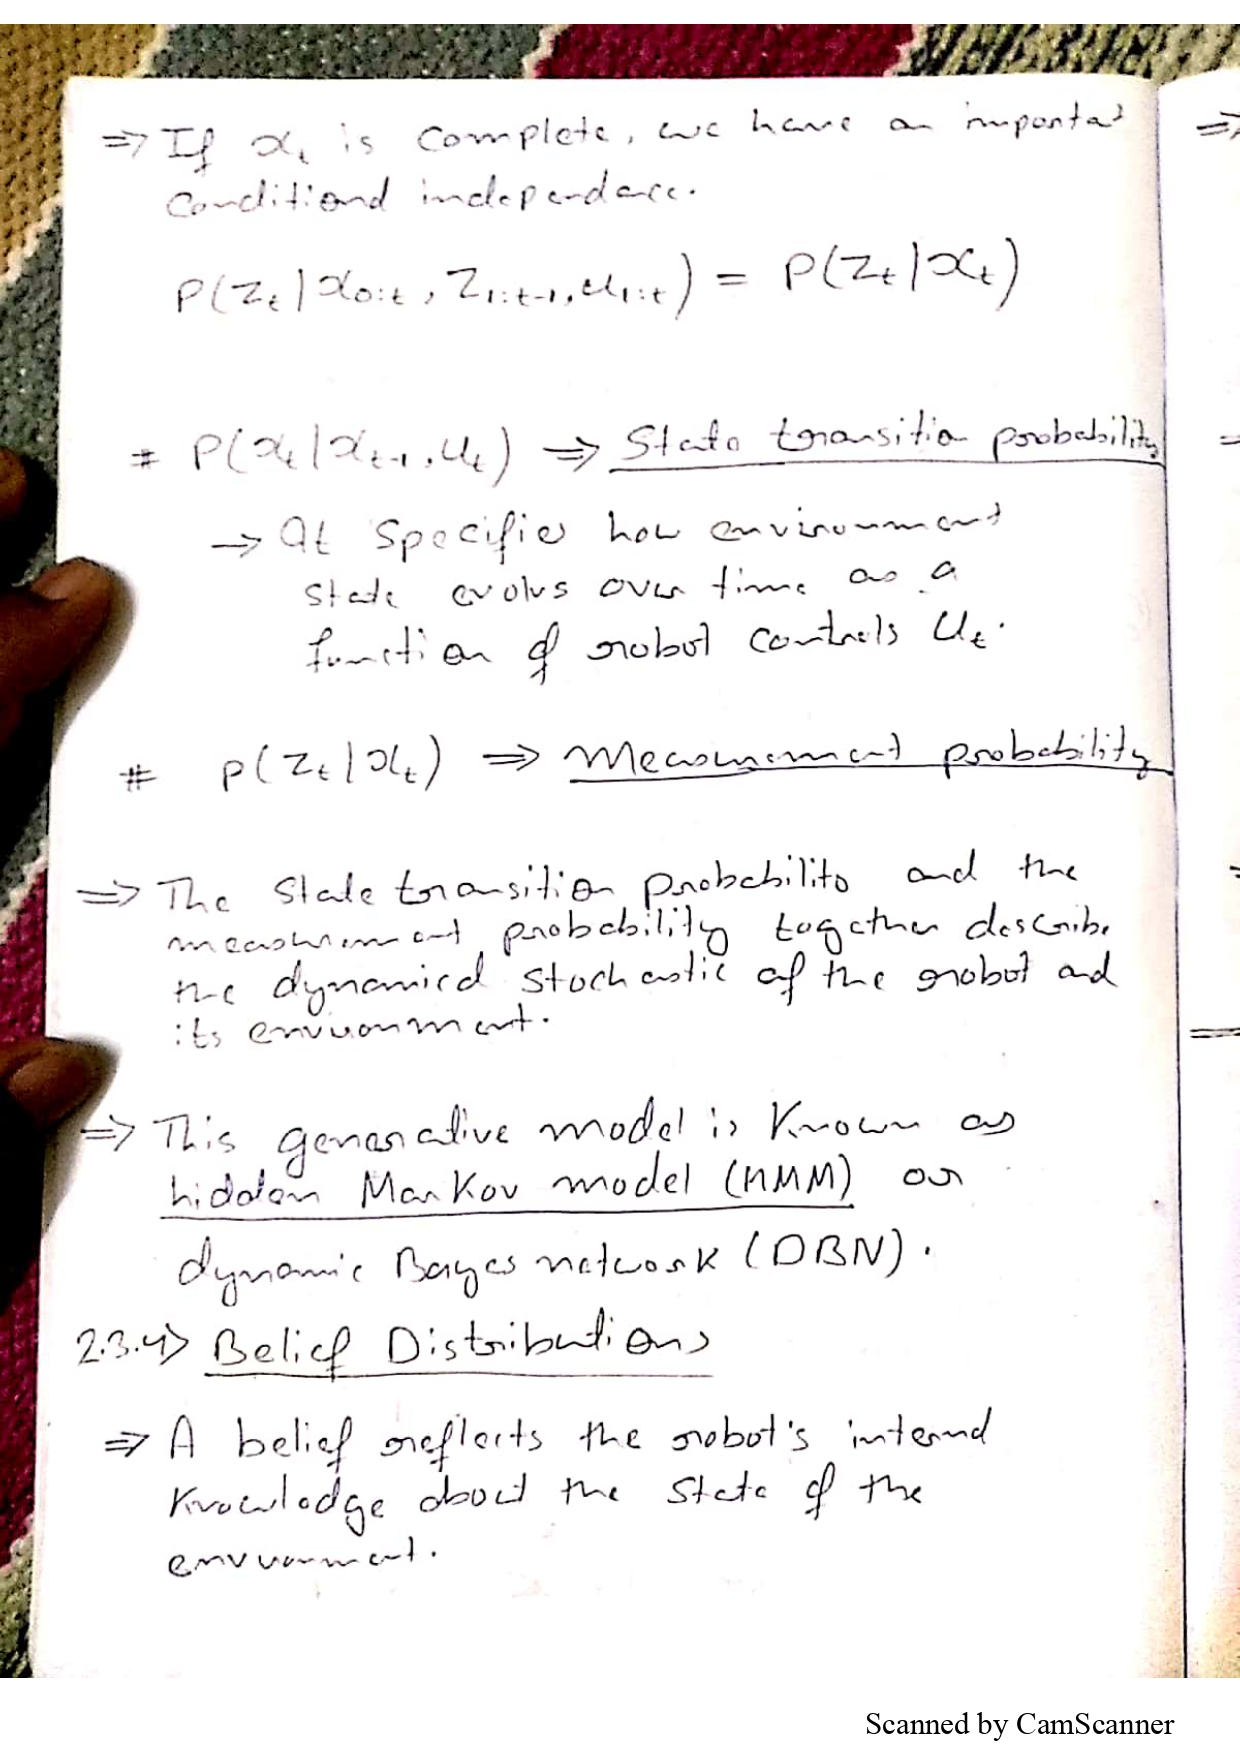 ⇒ If xₜ is complete, we have an important
conditional independence.
P(zₜ | x₀:ₜ, z₁:ₜ₋₁, u₁:ₜ) = P(zₜ | xₜ)
# P(xₜ | xₜ₋₁, uₜ) ⇒ State transition probability
→ It specifies how environment
state evolves over time as a
function of robot controls uₜ.
# p(zₜ | xₜ) ⇒ Measurement probability
⇒ The state transition probability and the
measurement probability together describe
the dynamical stochastic of the robot and
its environment.
⇒ This generative model is known as
hidden Markov model (HMM) or
dynamic Bayes network (DBN).
2.3.4> Belief Distributions
⇒ A belief reflects the robot's internal
knowledge about the state of the
environment.
Scanned by CamScanner